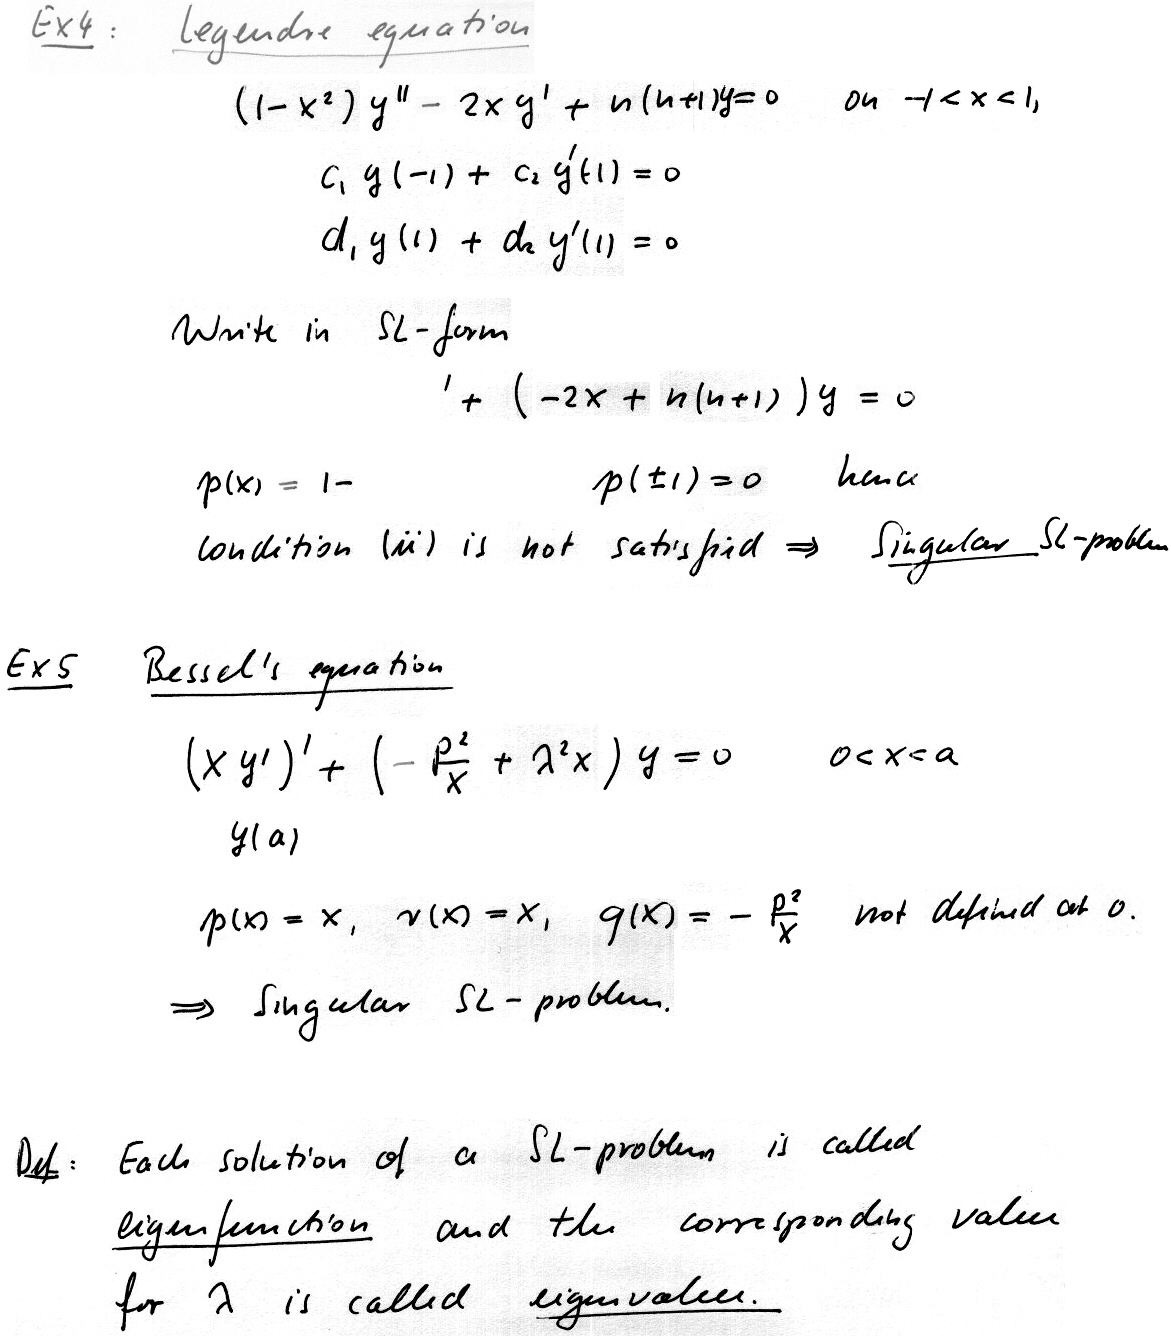 Ex4: Legendre equation
(1-x²) y'' - 2x y' + n(n+1)y=0 on -1<x<1,
c₁ y(-1) + c₂ y'(-1) = 0
d₁ y(1) + d₂ y'(1) = 0
Write in SL-form
' + (-2x + n(n+1))y = 0
p(x) = 1- p(±1)=0 hence
condition (ii) is not satisfied ⇒ Singular SL-problem
Ex5 Bessel's equation
(x y')' + (- p²/x + λ²x) y = 0 0<x<a
y(a)
p(x) = x, r(x) = x, q(x) = - p²/x not defined at 0.
⇒ Singular SL-problem.
Def: Each solution of a SL-problem is called
eigenfunction and the corresponding value
for λ is called eigenvalue.